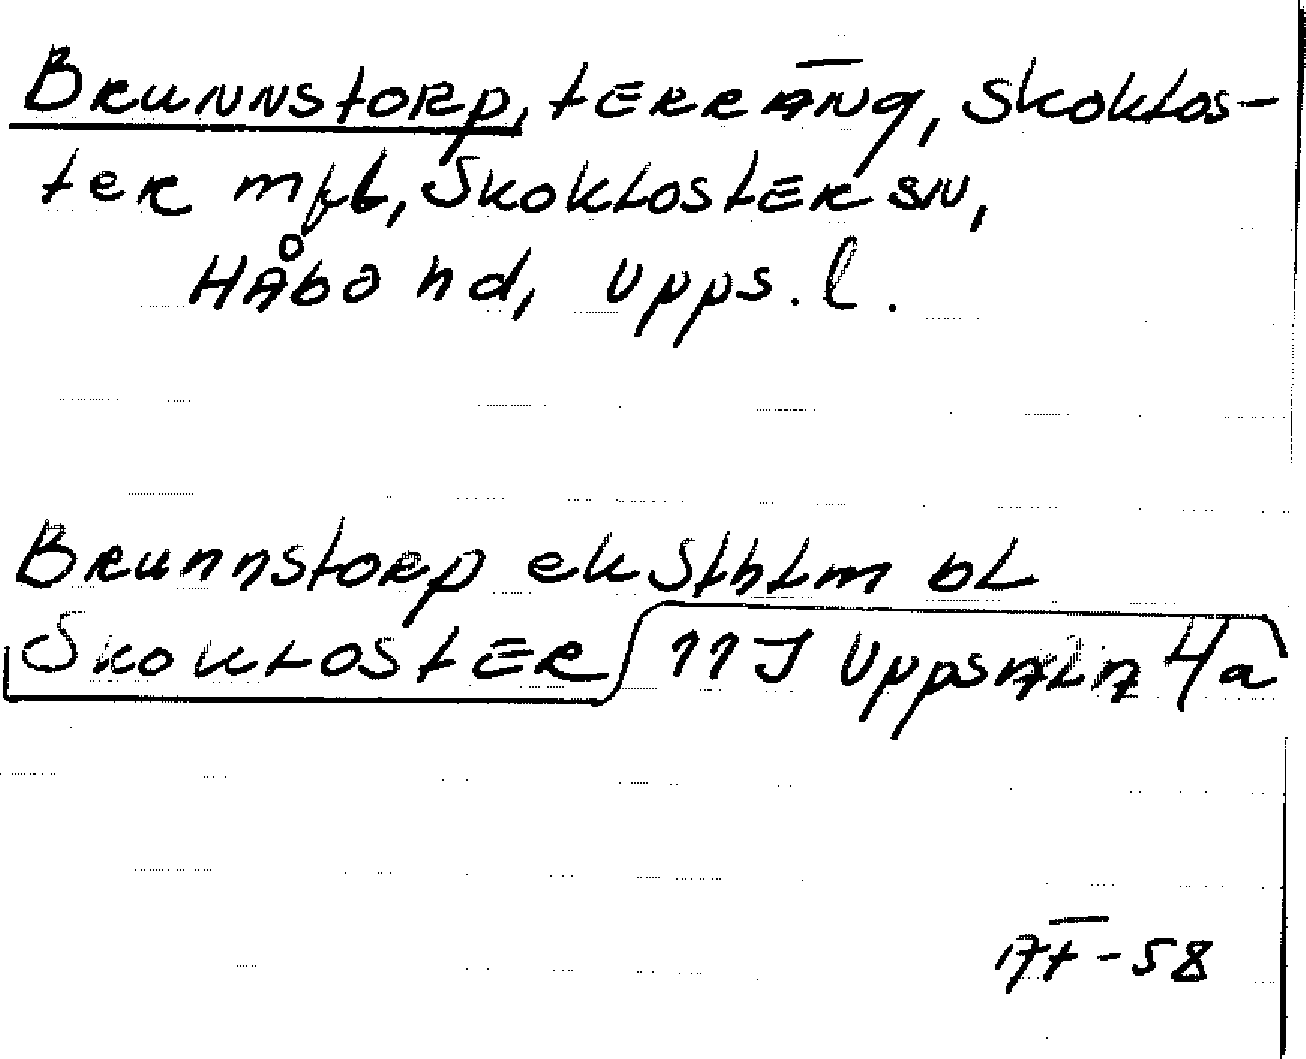 Brunnstorp, terräng, Skoklos-
ter mfl, Skokloster sn,
Håbo hd, Upps. l.
Brunnstorp ek Sthlm bl
Skokloster 11I Uppsala 4a
ÄT-58